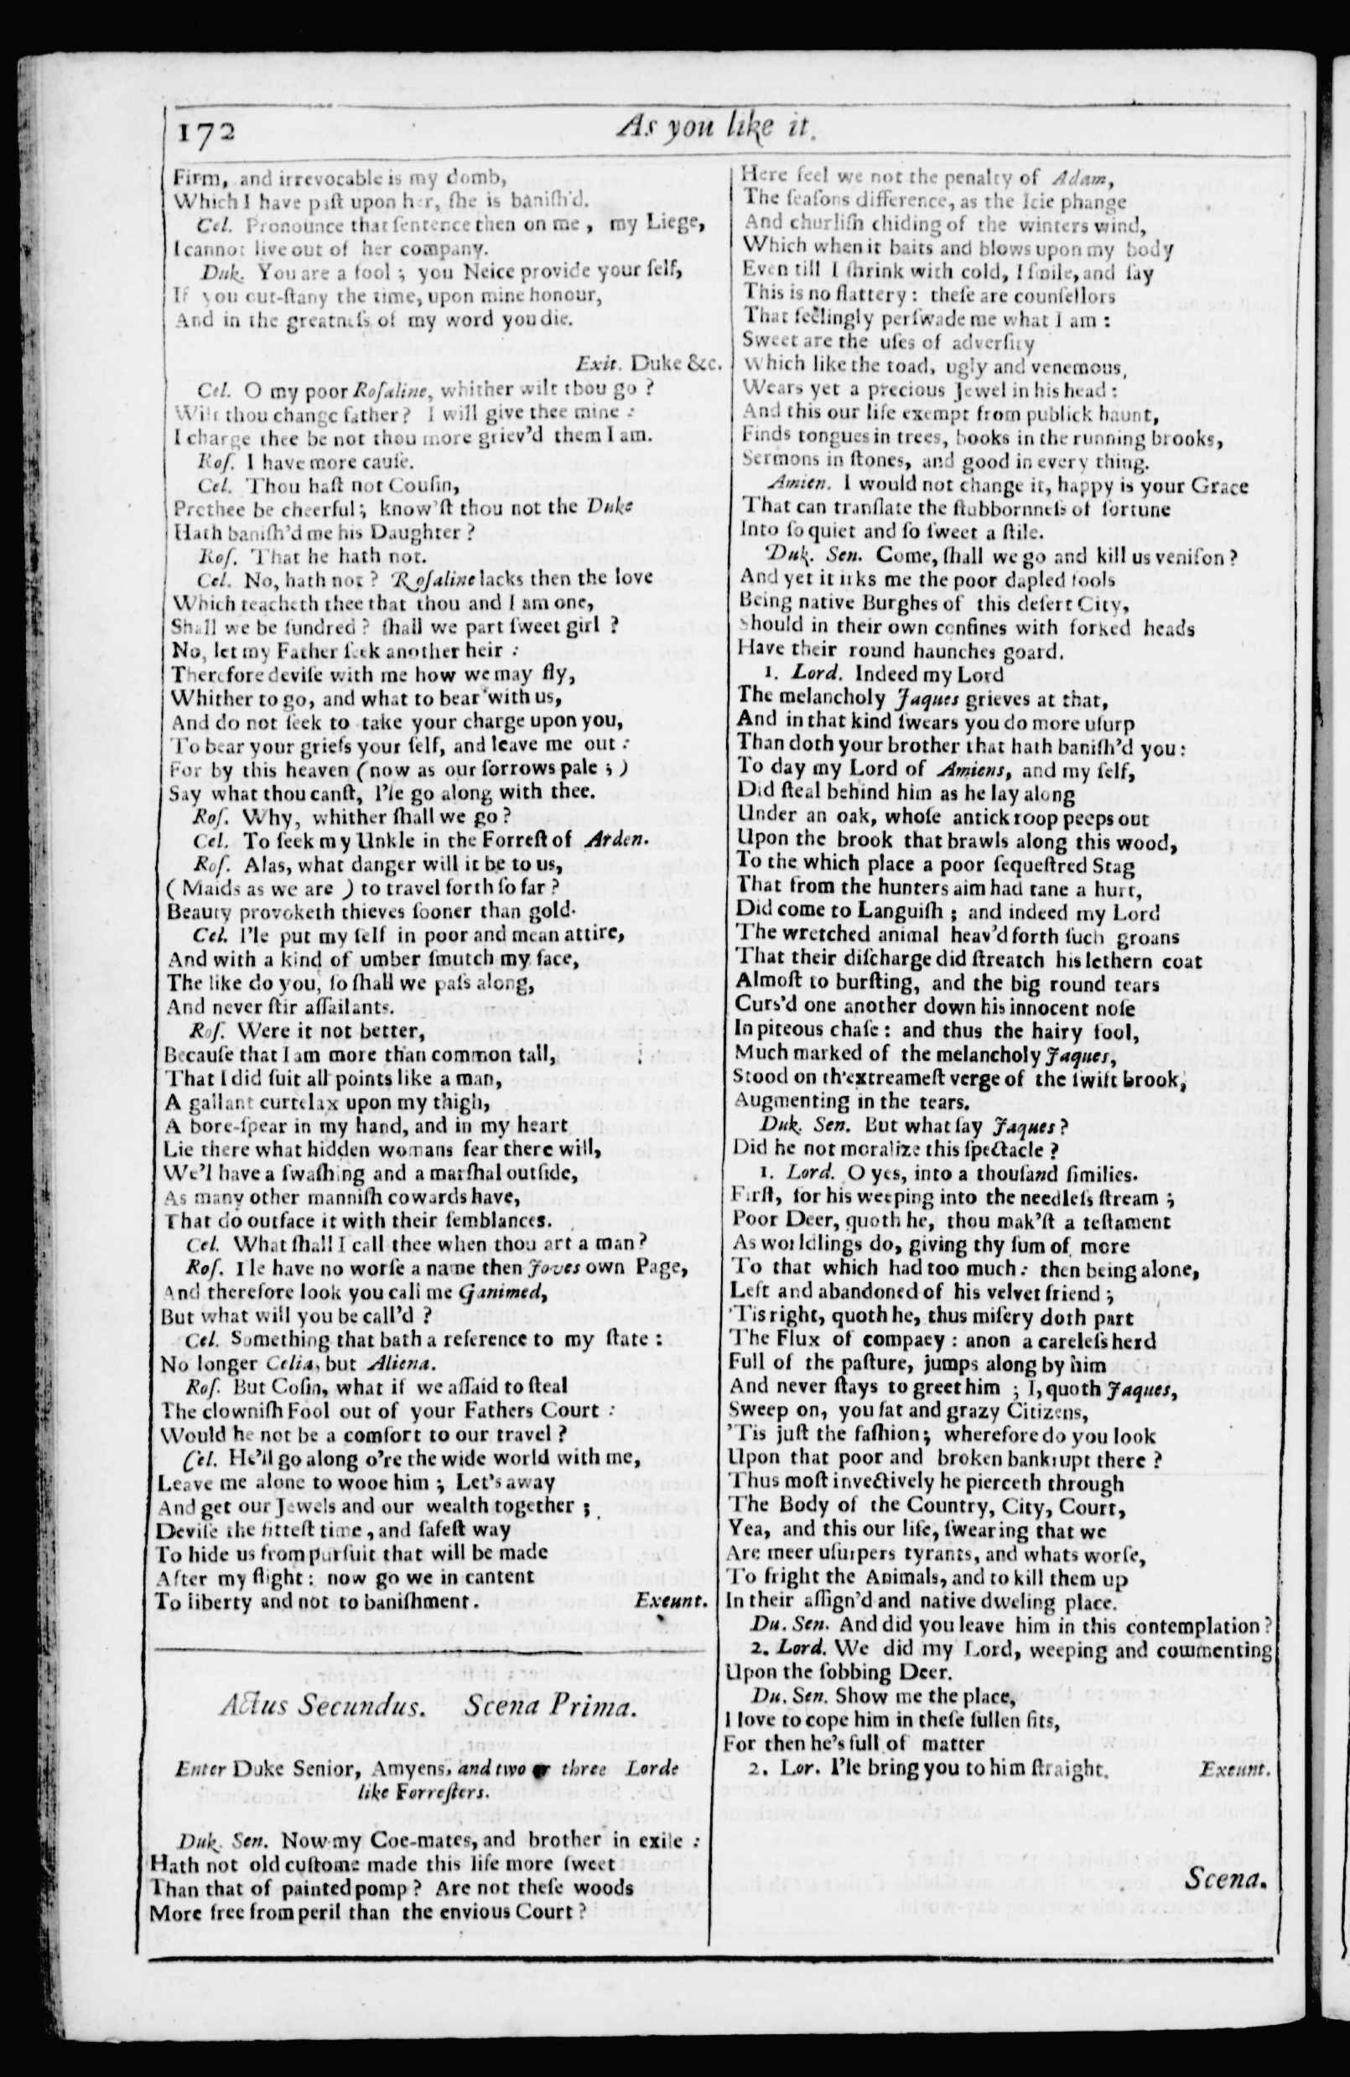 172
As you like it.
Firm, and irrevocable is my domb,
Which I have past upon her, ſhe is baniſh'd.
Cel. Pronounce that ſentence then on me, my Liege,
I cannot live out of her company.
Duk. You are a fool; you Neice provide your ſelf,
If you out-ſtany the time, upon mine honour,
And in the greatneſs of my word you die.
Exit. Duke &c.
Cel. O my poor Roſaline, whither wilt thou go?
Wilt thou change father? I will give thee mine:
I charge thee be not thou more griev'd them I am.
Roſ. I have more cauſe.
Cel. Thou haſt not Couſin,
Prethee be cheerful; know'ſt thou not the Duke
Hath baniſh'd me his Daughter?
Roſ. That he hath not.
Cel. No, hath not? Roſaline lacks then the love
Which teacheth thee that thou and I am one,
Shall we be ſundred? ſhall we part ſweet girl?
No, let my Father ſeek another heir:
Therefore deviſe with me how we may fly,
Whither to go, and what to bear with us,
And do not ſeek to take your charge upon you,
To bear your griefs your ſelf, and leave me out:
For by this heaven (now as our ſorrows pale;)
Say what thou canſt, I'le go along with thee.
Roſ. Why, whither ſhall we go?
Cel. To ſeek my Unkle in the Forreſt of Arden.
Roſ. Alas, what danger will it be to us,
(Maids as we are) to travel forth ſo far?
Beauty provoketh thieves ſooner than gold.
Cel. I'le put my ſelf in poor and mean attire,
And with a kind of umber ſmutch my face,
The like do you, ſo ſhall we paſs along,
And never ſtir aſſailants.
Roſ. Were it not better,
Becauſe that I am more than common tall,
That I did ſuit all points like a man,
A gallant curtelax upon my thigh,
A bore-ſpear in my hand, and in my heart
Lie there what hidden womans fear there will,
We'l have a ſwaſhing and a marſhal outſide,
As many other manniſh cowards have,
That do outface it with their ſemblances.
Cel. What ſhall I call thee when thou art a man?
Roſ. Ile have no worſe a name then Joves own Page,
And therefore look you call me Ganimed,
But what will you be call'd?
Cel. Something that hath a reference to my ſtate:
No longer Celia, but Aliena.
Roſ. But Coſin, what if we aſſaid to ſteal
The clowniſh Fool out of your Fathers Court:
Would he not be a comfort to our travel?
Cel. He'll go along o're the wide world with me,
Leave me alone to wooe him; Let's away
And get our Jewels and our wealth together;
Deviſe the fitteſt time, and ſafeſt way
To hide us from purſuit that will be made
After my flight: now go we in cantent
To liberty and not to baniſhment. Exeunt.
Actus Secundus. Scena Prima.
Enter Duke Senior, Amyens, and two or three Lorde
like Forreſters.
Duk. Sen. Now my Coe-mates, and brother in exile:
Hath not old cuſtome made this life more ſweet
Than that of painted pomp? Are not theſe woods
More free from peril than the envious Court?
Here feel we not the penalty of Adam,
The ſeaſons difference, as the Icie phange
And churliſh chiding of the winters wind,
Which when it baits and blows upon my body
Even till I ſhrink with cold, I ſmile, and ſay
This is no flattery: theſe are counſellors
That feelingly perſwade me what I am:
Sweet are the uſes of adverſity
Which like the toad, ugly and venemous,
Wears yet a precious Jewel in his head:
And this our life exempt from publick haunt,
Finds tongues in trees, books in the running brooks,
Sermons in ſtones, and good in every thing.
Amien. I would not change it, happy is your Grace
That can tranſlate the ſtubbornneſs of fortune
Into ſo quiet and ſo ſweet a ſtile.
Duk. Sen. Come, ſhall we go and kill us veniſon?
And yet it irks me the poor dapled fools
Being native Burghes of this deſert City,
Should in their own confines with forked heads
Have their round haunches goard.
1. Lord. Indeed my Lord
The melancholy Jaques grieves at that,
And in that kind ſwears you do more uſurp
Than doth your brother that hath baniſh'd you:
To day my Lord of Amiens, and my ſelf,
Did ſteal behind him as he lay along
Under an oak, whoſe antick roop peeps out
Upon the brook that brawls along this wood,
To the which place a poor ſequeſtred Stag
That from the hunters aim had tane a hurt,
Did come to Languiſh; and indeed my Lord
The wretched animal heav'd forth ſuch groans
That their diſcharge did ſtreatch his lethern coat
Almoſt to burſting, and the big round tears
Curs'd one another down his innocent noſe
In piteous chaſe: and thus the hairy fool,
Much marked of the melancholy Jaques,
Stood on th'extreameſt verge of the ſwift brook,
Augmenting in the tears.
Duk. Sen. But what ſay Jaques?
Did he not moralize this ſpectacle?
1. Lord. O yes, into a thouſand ſimilies.
Firſt, for his weeping into the needleſs ſtream;
Poor Deer, quoth he, thou mak'ſt a teſtament
As worldlings do, giving thy ſum of more
To that which had too much: then being alone,
Left and abandoned of his velvet friend;
'Tis right, quoth he, thus miſery doth part
The Flux of compaey: anon a careleſs herd
Full of the paſture, jumps along by him
And never ſtays to greet him; I, quoth Jaques,
Sweep on, you fat and grazy Citizens,
'Tis juſt the faſhion; wherefore do you look
Upon that poor and broken bankrupt there?
Thus moſt invectively he pierceth through
The Body of the Country, City, Court,
Yea, and this our life, ſwearing that we
Are meer uſurpers tyrants, and whats worſe,
To fright the Animals, and to kill them up
In their aſſign'd and native dweling place.
Du. Sen. And did you leave him in this contemplation?
2. Lord. We did my Lord, weeping and commenting
Upon the ſobbing Deer.
Du. Sen. Show me the place,
I love to cope him in theſe ſullen fits,
For then he's full of matter
2. Lor. I'le bring you to him ſtraight. Exeunt.
Scena.